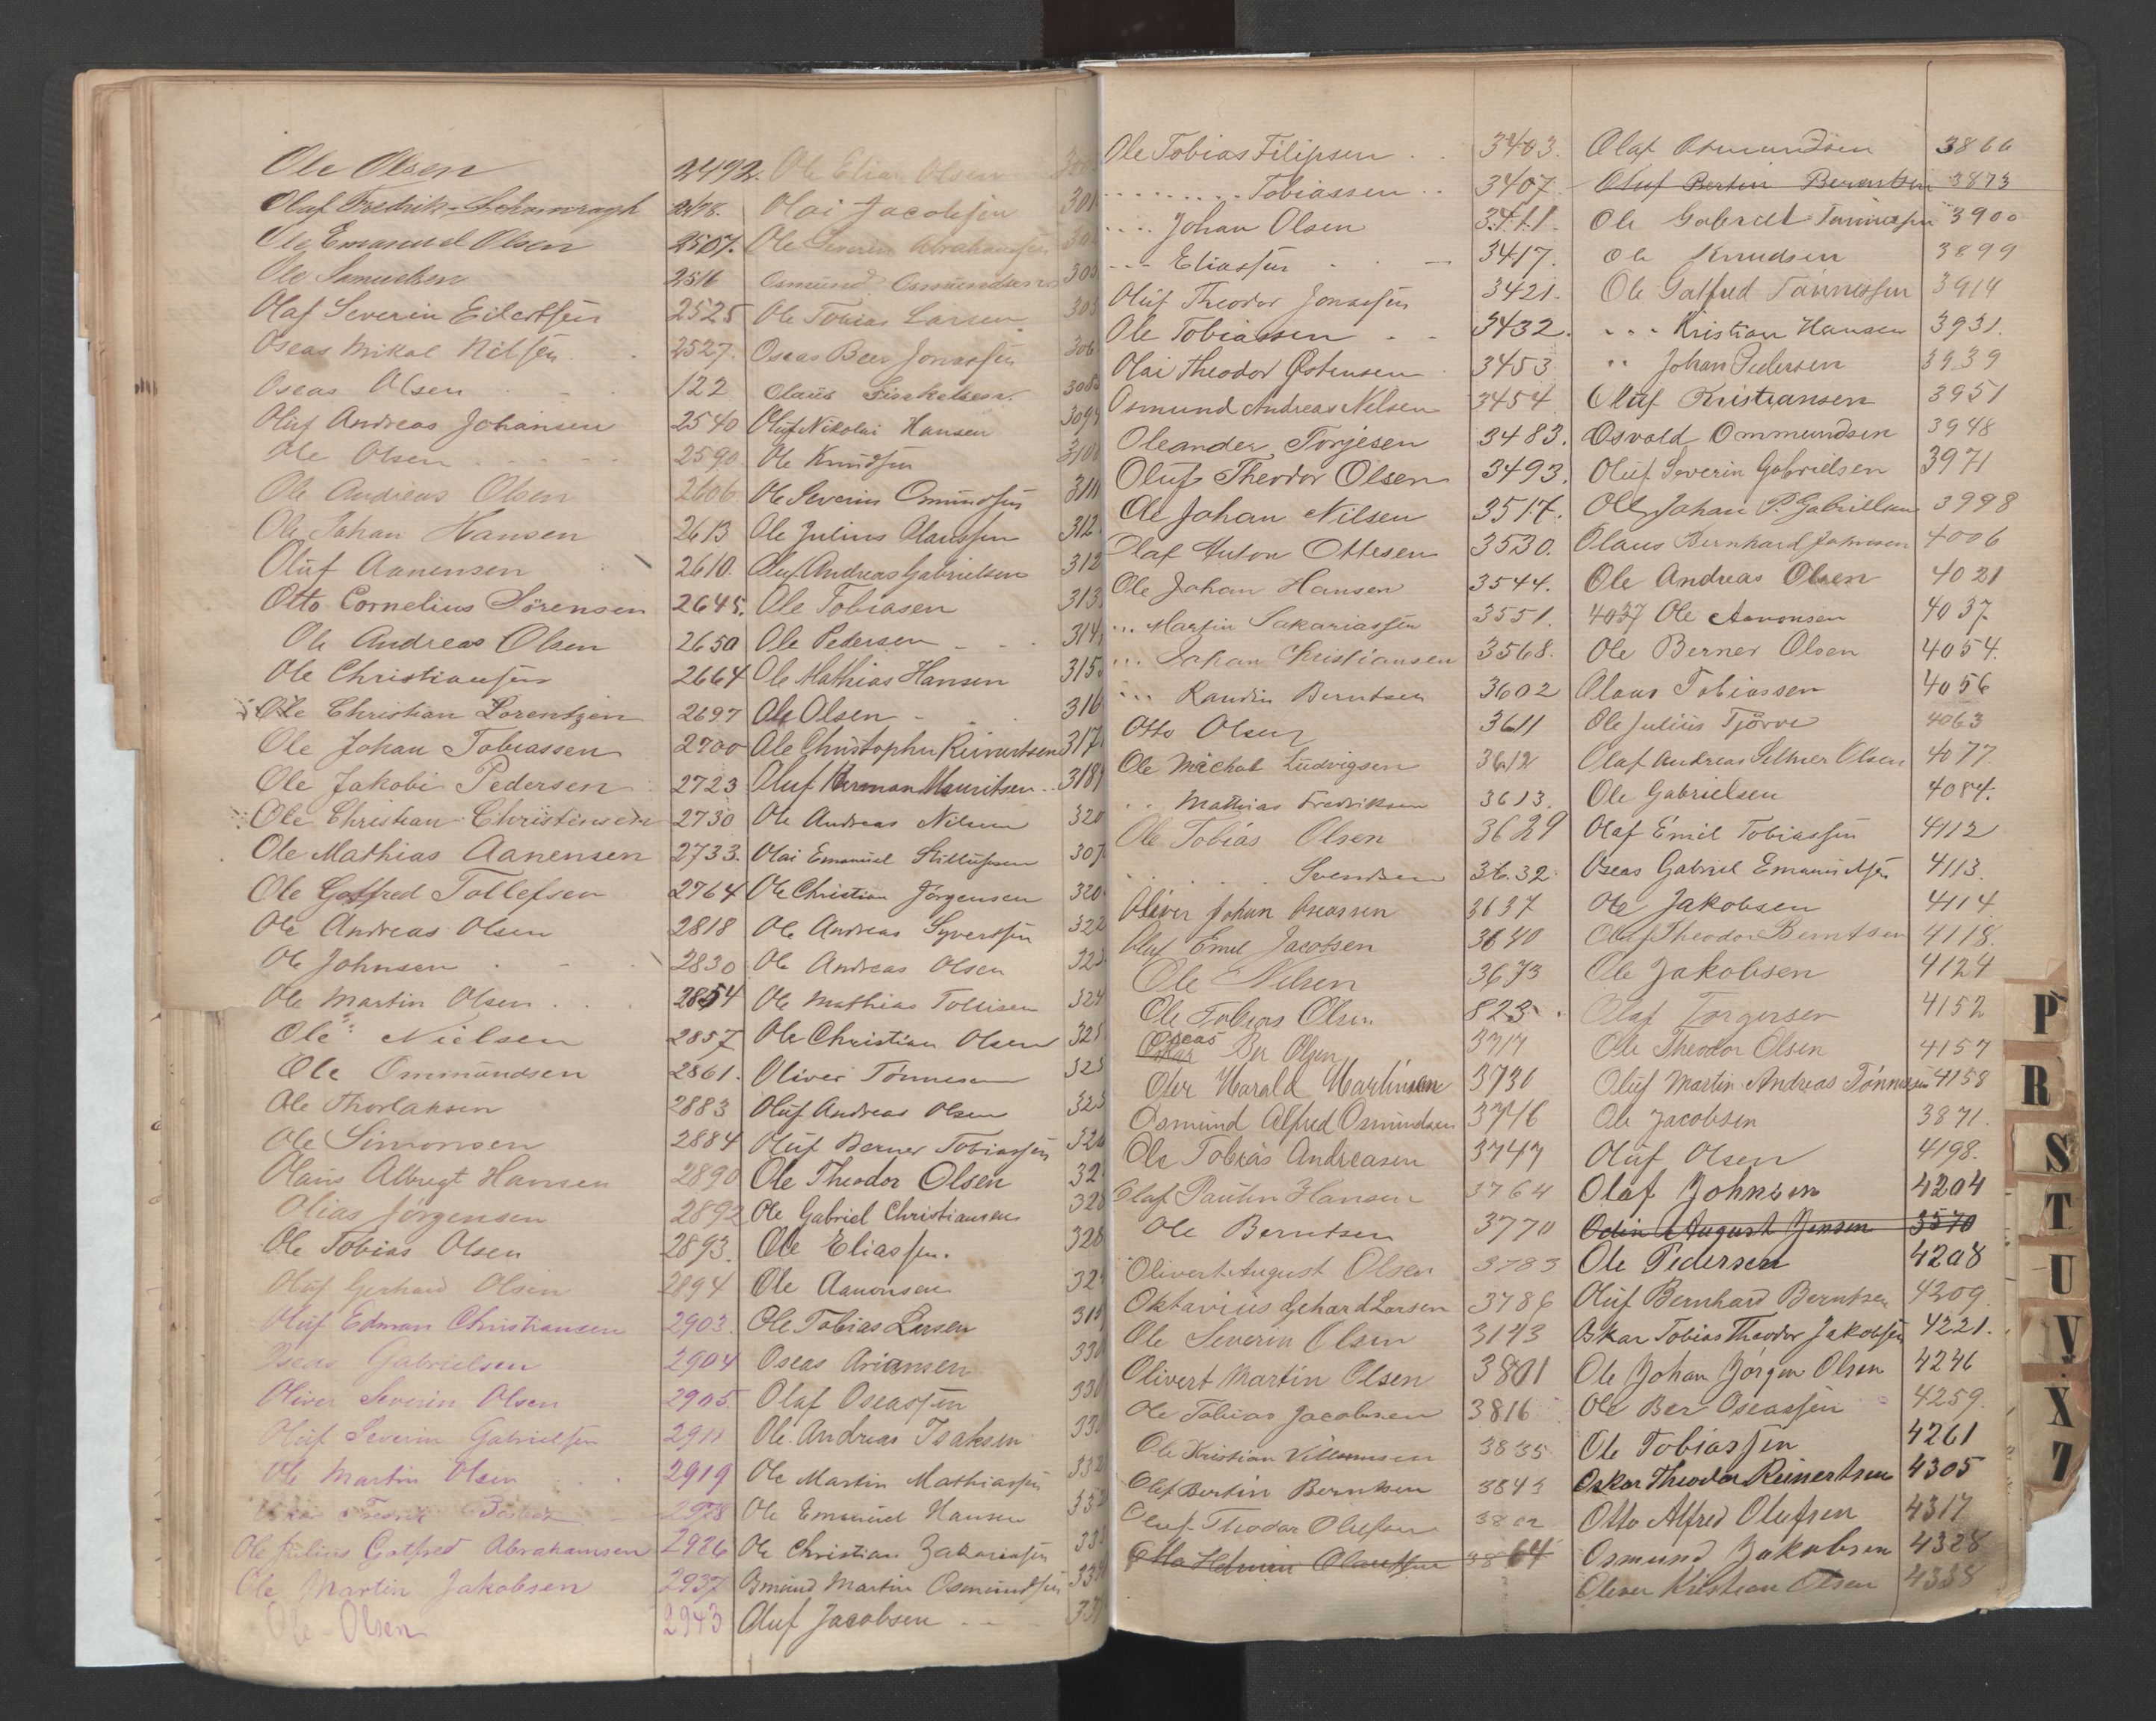 Ole Olsen 2492.
Olaf Fredrik
Ole Emanuel Olsen 2507.
Ole Samuelsen 2516
Olaf Severin Eilertsen 2525
Oseas Mikal Nilsen 2527.
Oseas Olsen 122
Oluf Andreas Johansen 2540
Ole Olsen 2590
Ole Andreas Olsen 2606
Ole Johan Hansen 2613
Oluf Aanensen 2610.
Otto Cornelius Sörensen 2645.
Ole Andreas Olsen 2650
Ole Christiansen 2664
Ole Christian Lorentzen 2697
Ole Johan Tobiassen 2700
Ole Jakobi Pedersen 2723
Ole Christian Christensen 2730
Ole Mathias Aanensen 2733.
Ole Gotfred Tollefsen 2764
Ole Andreas Olsen 2818
Ole Johnsen 2830
Ole Martin Olsen 2854
Ole Nielsen 2857
Ole Ommundsen 2861.
Ole Thorlaksen 2883
Ole Simonsen 2884
Olaus Albregt Hansen 2890
Olias Jörgensen 2892
Ole Tobias Olsen 2893.
Oluf Gerhard Olsen 2894
Oluf Edman Christiansen 2903.
Oseas Gabrielsen 2904
Oliver Severin Olsen 2905.
Oluf Severin Gabrielsen 2911
Ole Martin Olsen 2919
Ole Julius Gotfred Abrahamsen 2926
Ole Martin Jakobsen 2937
Ole Olsen 2943
Ole Elias Olsen
Olai Jacobsen 301
Ole Severin Abrahamsen
Osmund Osmundsen
Ole Tobias Larsen
Oseas Beer Jonassen 306
Olaus 308
Oluf Nikolai Hansen 309
Ole Knudsen 310
Ole Severin Omundsen 311
Ole Julius Olaussen 312
Oluf Andreas Gabrielsen 312
Ole Tobiasen 313
Ole Pedersen 314
Ole Mathias Hansen 315
Ole Olsen 316
Ole Christopher Reinertsen 317
Oluf Herman Mauritsen 318
Ole Andreas Nilsen 320
Olai Emanuel 307
Ole Christian Jörgensen 320
Ole Andreas Syvertsen 322
Ole Andreas Olsen 323
Ole Mathias Tollisen 324
Ole Christian Olsen 325
Oliver Tönnesen 325
Oluf Andreas Olsen 325
Oluf Berner Tobiassen 326
Ole Theodor Olsen 32
Ole Gabriel Christiansen 328
Ole Eliassen. 328
Ole Aanonsen 32
Ole Tobias Larsen 315
Oseas Ariansen 330
Olaf Oseassen 330
Ole Andreas Isaksen 330
Ole Martin Mathiassen 332
Ole Emanuel Hansen 332
Ole Christian Zakariasen 333
Osmund Martin Osmundsen 334
Oluf Jacobsen 33
Ole Tobias Filipsen 3403.
Tobiassen 3407
Johan Olsen 3411.
Eliassen 3417.
Oluf Theodor Jonassen 3421.
Ole Tobiassen 3432.
Olai Theodor Østensen 3453
Osmund Andreas Nilsen 3454
Oleander Torjesen 3483.
Oluf Theodor Olsen 3493.
Ole Johan Nilsen 3517.
Olaf Anton Ottesen 3530.
Ole Johan Hansen 3544.
Martin Sakariassen 3551.
Johan Kristiansen 3568.
Randin Berntsen 3602
Otto Olsen 3611
Ole Michal Ludvigsen 3612
Mathias Fredriksen 3613.
Ole Tobias Olsen 3629
Svendsen 3632
Oliver Johan Oseassen 3637
Oluf Emil Jacobsen 3640
Ole Nilsen 3673
Ole Tobias Olsen 823
Oseas
Ber Olsen 3717
Harald Martinsen 3730
Osmund Alfred Osmundsen 3746
Ole Tobias Andreasen 3747
Olaf Paulin Hansen 3764
Ole Berntsen 3770
Olivert August Olsen 3783
Oktavius Gehard Larsen 3786
Ole Severin Olsen 3143
Olivert Martin Olsen 3801
Ole Tobias Jacobsen 3816
Ole Kristian Villumsen 3835
Oluf Bertin Berntsen 3843
Oluf Theodor Olufsen
3864
Olaf Osmundsen 3866
Oluf Bertin Berntsen 3873
Ole Gabriel Tønnesen 3900
Ole Knudsen 3899
Ole Gotfred Tønnessen 3914
Kristian Hansen 3931.
Johan Pedersen 3939
Oluf Kristiansen 3951
Osvald Ommundsen 3948
Oluf Severin Gabrielsen 3971
Ole Johan P. Gabrielsen 3998
Olaus Bernhard Johnsen 4006
Ole Andreas Olsen 4021
4037 Ole Aanonsen 4037.
Ole Berner Olsen 4054.
Olaus Tobiassen 4056
Ole Julius Tjörve 4063
Olaf Andreas Selmer Olsen 4077
Ole Gabrielsen 4084.
Olaf Emil Tobiassen 4112
Oseas Gabriel 4113.
Ole Jakobsen 4114
Oluf Theodor Berntsen 4118.
Ole Jakobsen 4124
Olaf Torgersen 4152
Ole Theodor Olsen 4157
Oluf Martin Andreas Tönnesen 4158
Ole Jacobsen 3871.
Oluf Olsen 4198.
Olaf Johnsen 4204
Odin August Jensen 3570
Ole Pedersen 4208
Oluf Bernhard Berntsen 4209
Oskar Tobias Theodor Jakobsen 4221.
Ole Johan Jörgen Olsen 4246
Ole Ber Oseassen 4259.
Ole Tobiassen 4261
Oskar Theodor Reinertsen 4305
Otto Alfred Olufsen 4317
Osmund Jakobsen 4328
Oliver Kristian Olsen 4338
P
R
S
T
U
V
X
Z